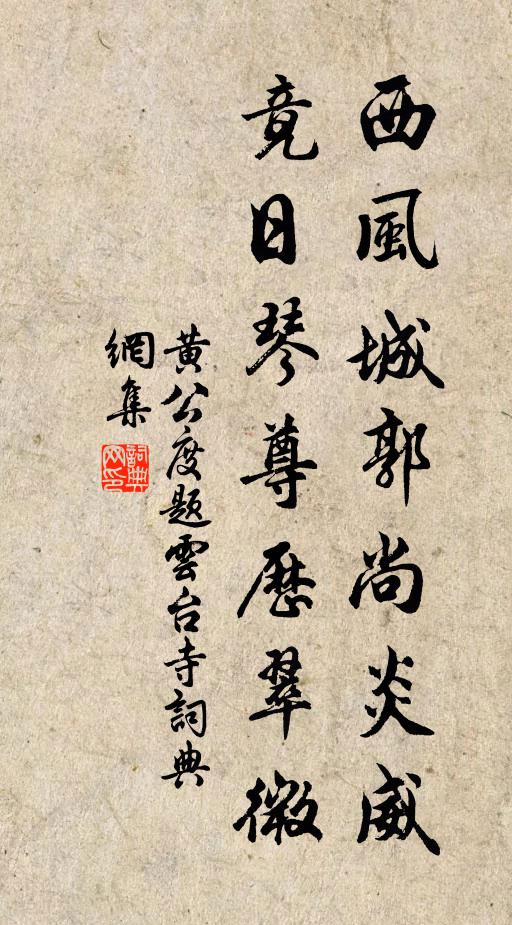 西風城郭尚炎威
竟日琴尊歷翠微
黄公度題雲台寺詞典
網集
詞典網印